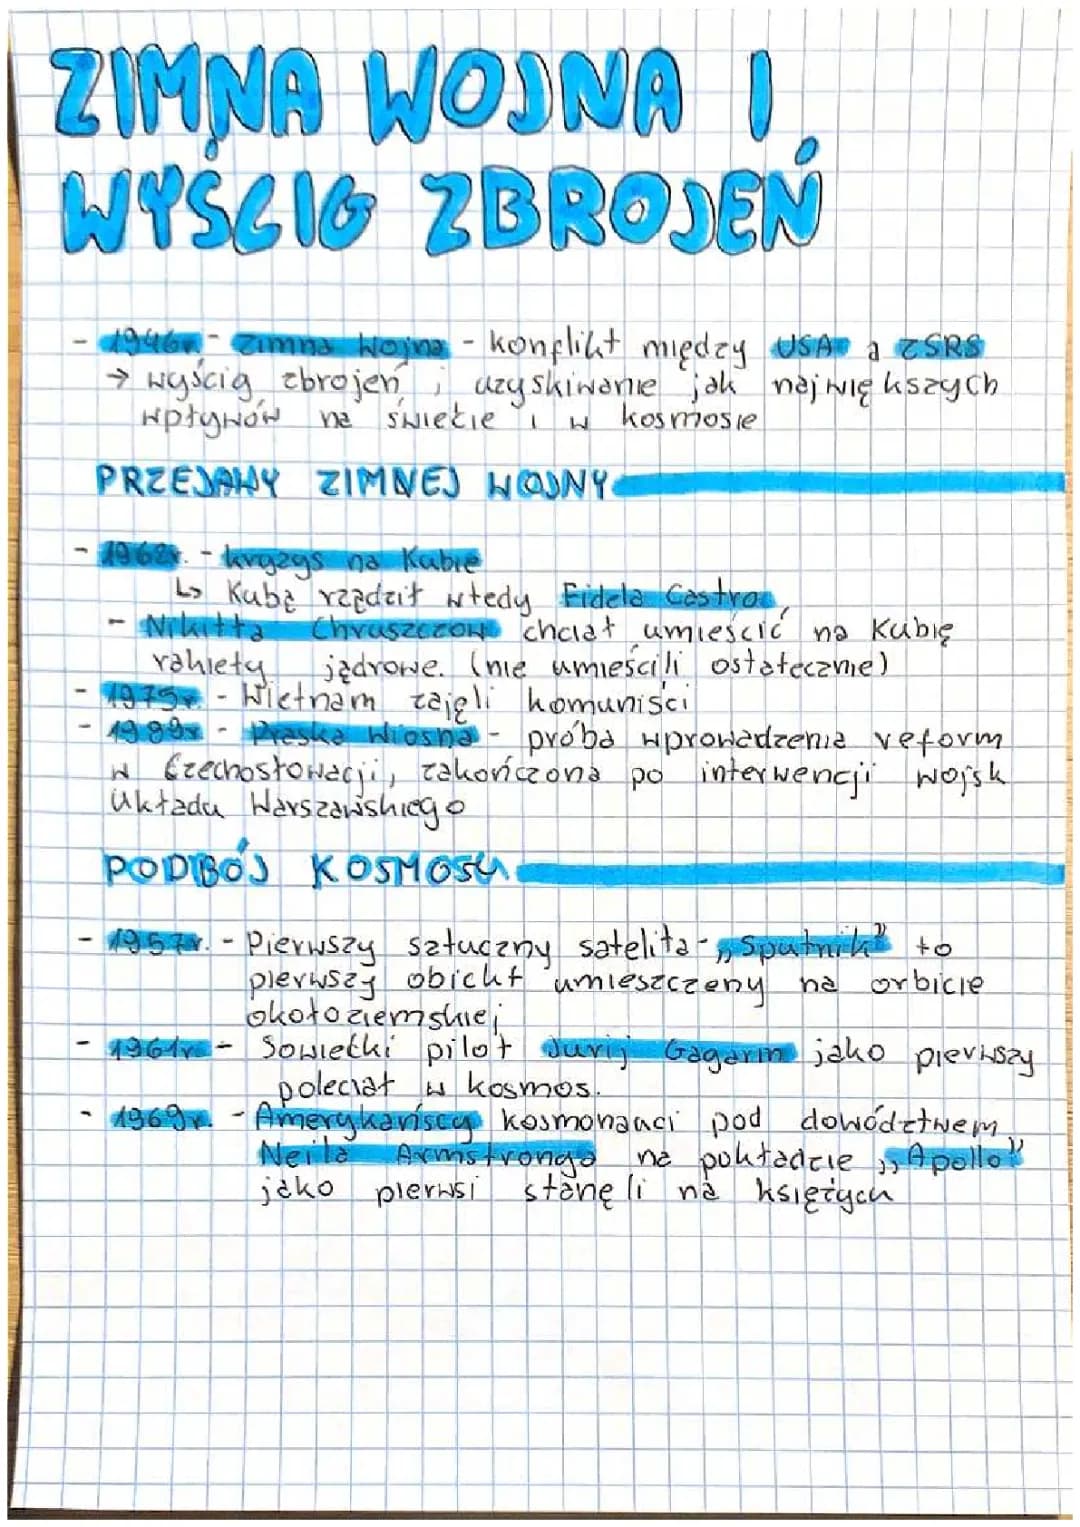 ZIMNA WOJNA I
WYŚCIG ZBROJEŃ
- 1946r. - Zimna Wojna - konflikt między USA a ZSRS
→ wyścig zbrojeń, uzyskiwanie jak największych
wpływów na świecie i w kosmosie
PRZEJAWY ZIMNEJ WOJNY
- 1962r. - kryzys na Kubie
↳ Kubą rządził wtedy Fidela Castro
- Nikitta Chruszczow chciał umieścić na Kubię
rakiety jądrowe. (nie umieścili ostatecznie)
- 1975r. - Wietnam zajęli komuniści
- Praska Wiosna - próba wprowadzenia reform
w Czechosłowacji, zakończona po interwencji wojsk
Układu Warszawskiego
PODBÓJ KOSMOSU
- 1957r. - Pierwszy sztuczny satelita - „Sputnik” to
pierwszy obiekt umieszczeny na orbicie
okołoziemskiej
- 1961r. - Sowiecki pilot Jurij Gagarin jako pierwszy
poleciał w kosmos.
- 1969r. - Amerykańscy kosmonauci pod dowództwem
Neila Armstronga na pokładzie „Apollo”
jako pierwsi stanęli na księżycu